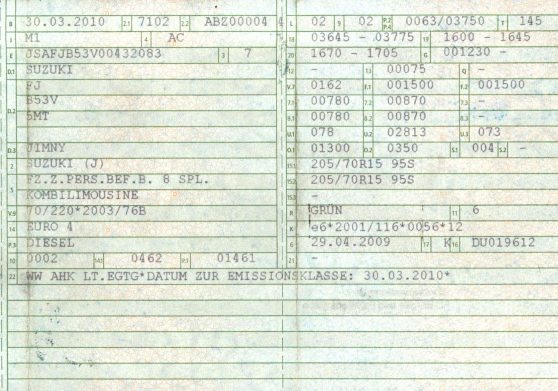 B 30.03.2010 2.1 7102 2.2 ABZ000004 4 L 02 9 02 P.2 P.4 0063/03750 T 145
J M1 4 AC 18 03645 - 03775 19 1600 - 1645
E JSAFJB53V00432083 3 7 20 1670 - 1705 G 001230 -
D.1 SUZUKI 12 - 13 00075 Q -
FJ V.7 0162 F.1 001500 F.2 001500
D.2 B53V 7.1 00780 7.2 00870 7.3 -
5MT 8.1 00780 8.2 00870 8.3 -
U.1 078 U.2 02813 U.3 073
D.3 JIMNY O.1 01300 O.2 0350 S.1 004 S.2 -
2 SUZUKI (J) 15.1 205/70R15 95S
5 FZ.Z.PERS.BEF.B. 8 SPL. 15.2 205/70R15 95S
KOMBILIMOUSINE 15.3 -
V.9 70/220*2003/76B R GRÜN 11 6
14 EURO 4 K e6*2001/116*0056*12
P.3 DIESEL 6 29.04.2009 17 K 16 DU019612
10 0002 14.1 0462 P.1 01461 21 -
22 WW AHK LT.EGTG*DATUM ZUR EMISSIONSKLASSE: 30.03.2010*